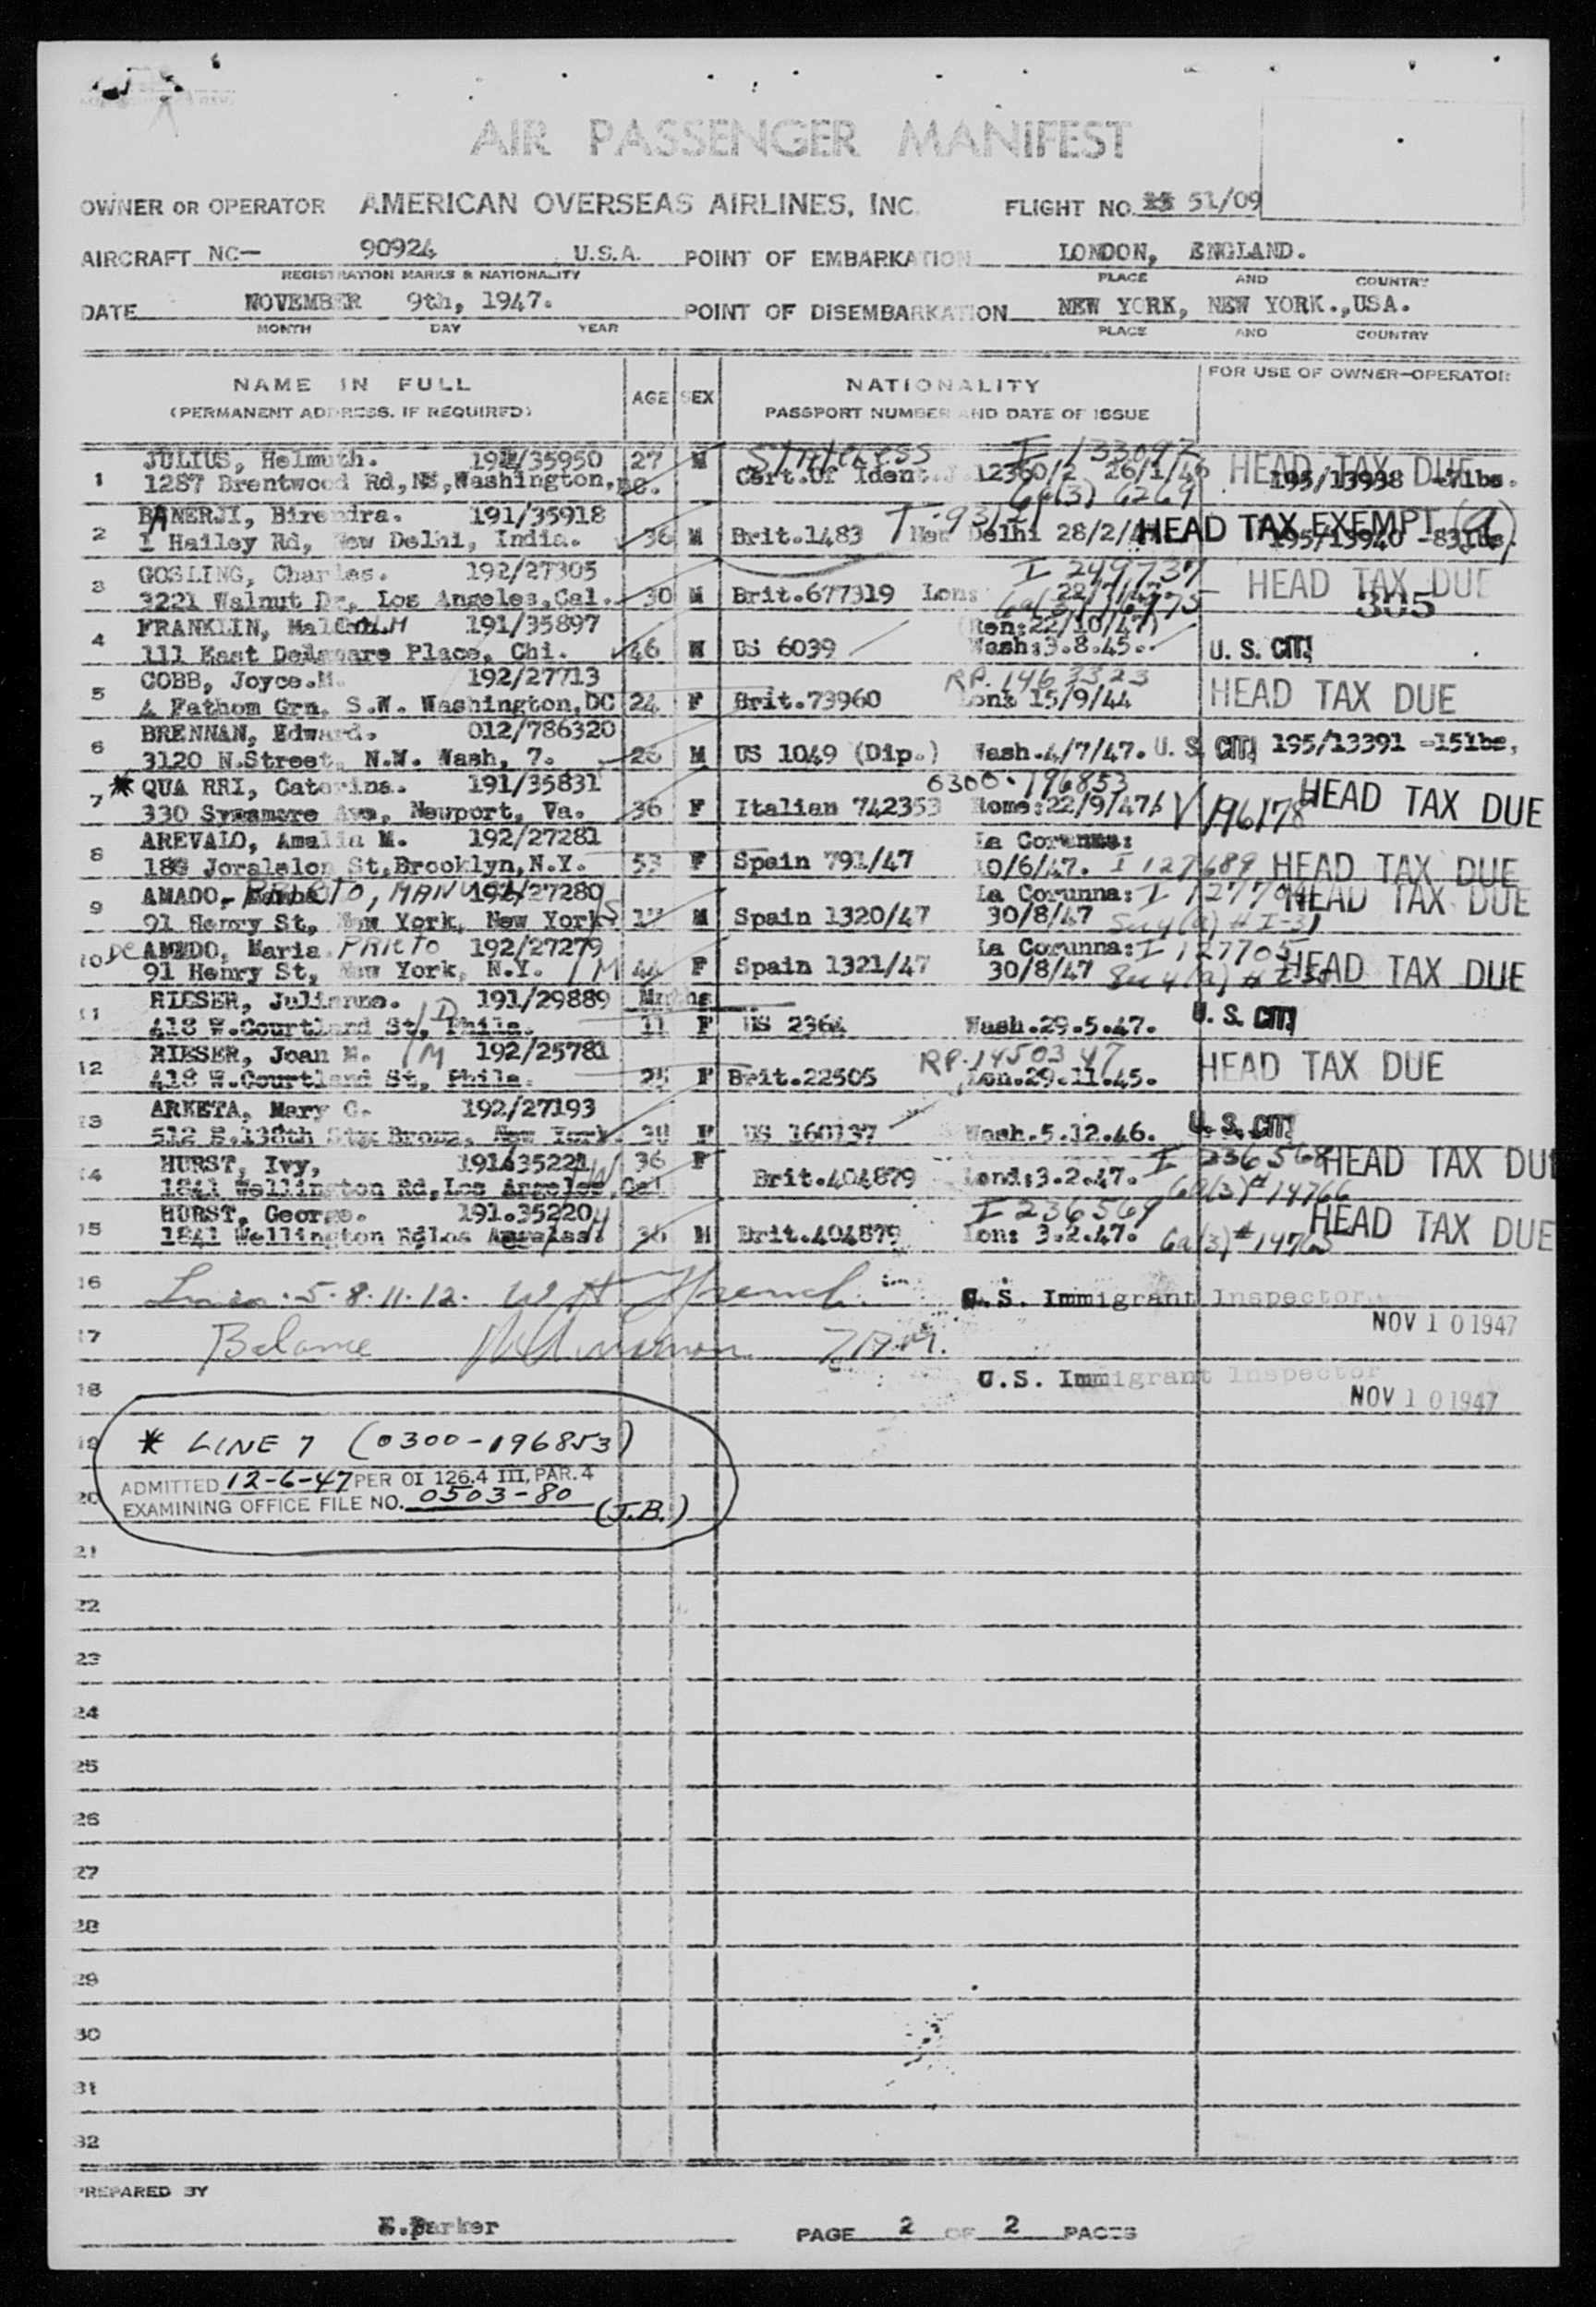 AIR PASSENGER MANIFEST
OWNER OR OPERATOR AMERICAN OVERSEAS AIRLINES, INC. FLIGHT NO. 51/09
AIRCRAFT NC— 90924 U.S.A. POINT OF EMBARKATION LONDON, ENGLAND.
REGISTRATION MARKS & NATIONALITY PLACE AND COUNTRY
DATE NOVEMBER 9th, 1947. POINT OF DISEMBARKATION NEW YORK, NEW YORK.,USA.
MONTH DAY YEAR PLACE AND COUNTRY
NAME IN FULL AGE SEX NATIONALITY FOR USE OF OWNER-OPERATOR
(PERMANENT ADDRESS, IF REQUIRED) PASSPORT NUMBER AND DATE OF ISSUE
JULIUS, Helmuth. 192/35950 27 M Stateless I 133097 HEAD TAX DUE
1 1287 Brentwood Rd,NE,Washington,DC. Cert.Of Ident. 12360/2 26/1/46 195/13938 -71bs.
6a(3) 6269
BANERJI, Birendra. 191/35918
2 1 Hailey Rd, New Delhi, India. 36 M Brit.1483 New Delhi 28/2/ HEAD TAX EXEMPT (a) 195/13940 -83lbs.
GOSLING, Charles. 192/27305 I 249737 HEAD TAX DUE
3 3221 Walnut Dr, Los Angeles,Cal. 30 M Brit.677319 Lon: 22/7/47. 305
FRANKLIN, MalCOLM 191/35897 (Ren:22/10/47)
4 111 East Delaware Place, Chi. 46 M US 6039 Wash:3.8.45. U. S. CIT.
COBB, Joyce.M. 192/27713 RP. 1463323
5 4 Fathom Grn, S.W. Washington,DC 24 F Brit.73960 Lon: 15/9/44 HEAD TAX DUE
BRENNAN, Edward. 012/786320
6 3120 N.Street, N.W. Wash, 7. 26 M US 1049 (Dip.) Wash.4/7/47. U. S. CIT. 195/13391 -151bs,
* QUA RRI, Caterina. 191/35831 0300-196853
7 330 Sycamore Ave, Newport, Va. 36 F Italian 742353 Rome:22/9/47 V 196178 HEAD TAX DUE
AREVALO, Amalia M. 192/27281 La Corunna:
8 Joralelon St,Brooklyn,N.Y. 53 F Spain 791/47 10/6/47. I 127689 HEAD TAX DUE
AMADO, PRIETO, MANUEL 192/27280 La Corunna: HEAD TAX DUE
9 91 Henry St, New York, New York 17 M Spain 1320/47 30/8/47
DE AMADO, Maria. PRIETO 192/27279 La Corunna: I 127705
10 91 Henry St, New York, N.Y. M 44 F Spain 1321/47 30/8/47 HEAD TAX DUE
RIESER, Julianne. 191/29889 Mnths
11 418 W.Courtland St, Phila. 11 F US 2364 Wash.29.5.47. U. S. CIT.
RIESER, Joan M. 192/25781 RP. 1450347
12 418 W.Courtland St, Phila. 25 F Brit.22505 Lon.29.11.45. HEAD TAX DUE
ARKETA, Mary C. 192/27193
13 512 E.138th St, Bronx, New York. 30 F US 160137 Wash.5.12.46. U. S. CIT.
HURST, Ivy, 191.35221 36 F I 236568 HEAD TAX DUE
14 1841 Wellington Rd,Los Angeles,Cal Brit.404879 Lond:3.2.47. 6a(3)# 14766
HURST, George. 191.35220 I 236569
15 1841 Wellington Rd,Los Angeles. 36 M Brit.404879 Lon: 3.2.47. 6a(3)# 14765 HEAD TAX DUE
16 Lines 5-8-11-12. French U.S. Immigrant Inspector
NOV 10 1947
17 Balance
18 U.S. Immigrant Inspector
NOV 10 1947
19 * LINE 7 (0300-196853)
ADMITTED 12-6-47 PER OI 126.4 III, PAR. 4
20 EXAMINING OFFICE FILE NO. 0503-80 (J.B.)
21
22
23
24
25
26
27
28
29
30
31
32
PREPARED BY
E.Parker PAGE 2 OF 2 PAGES